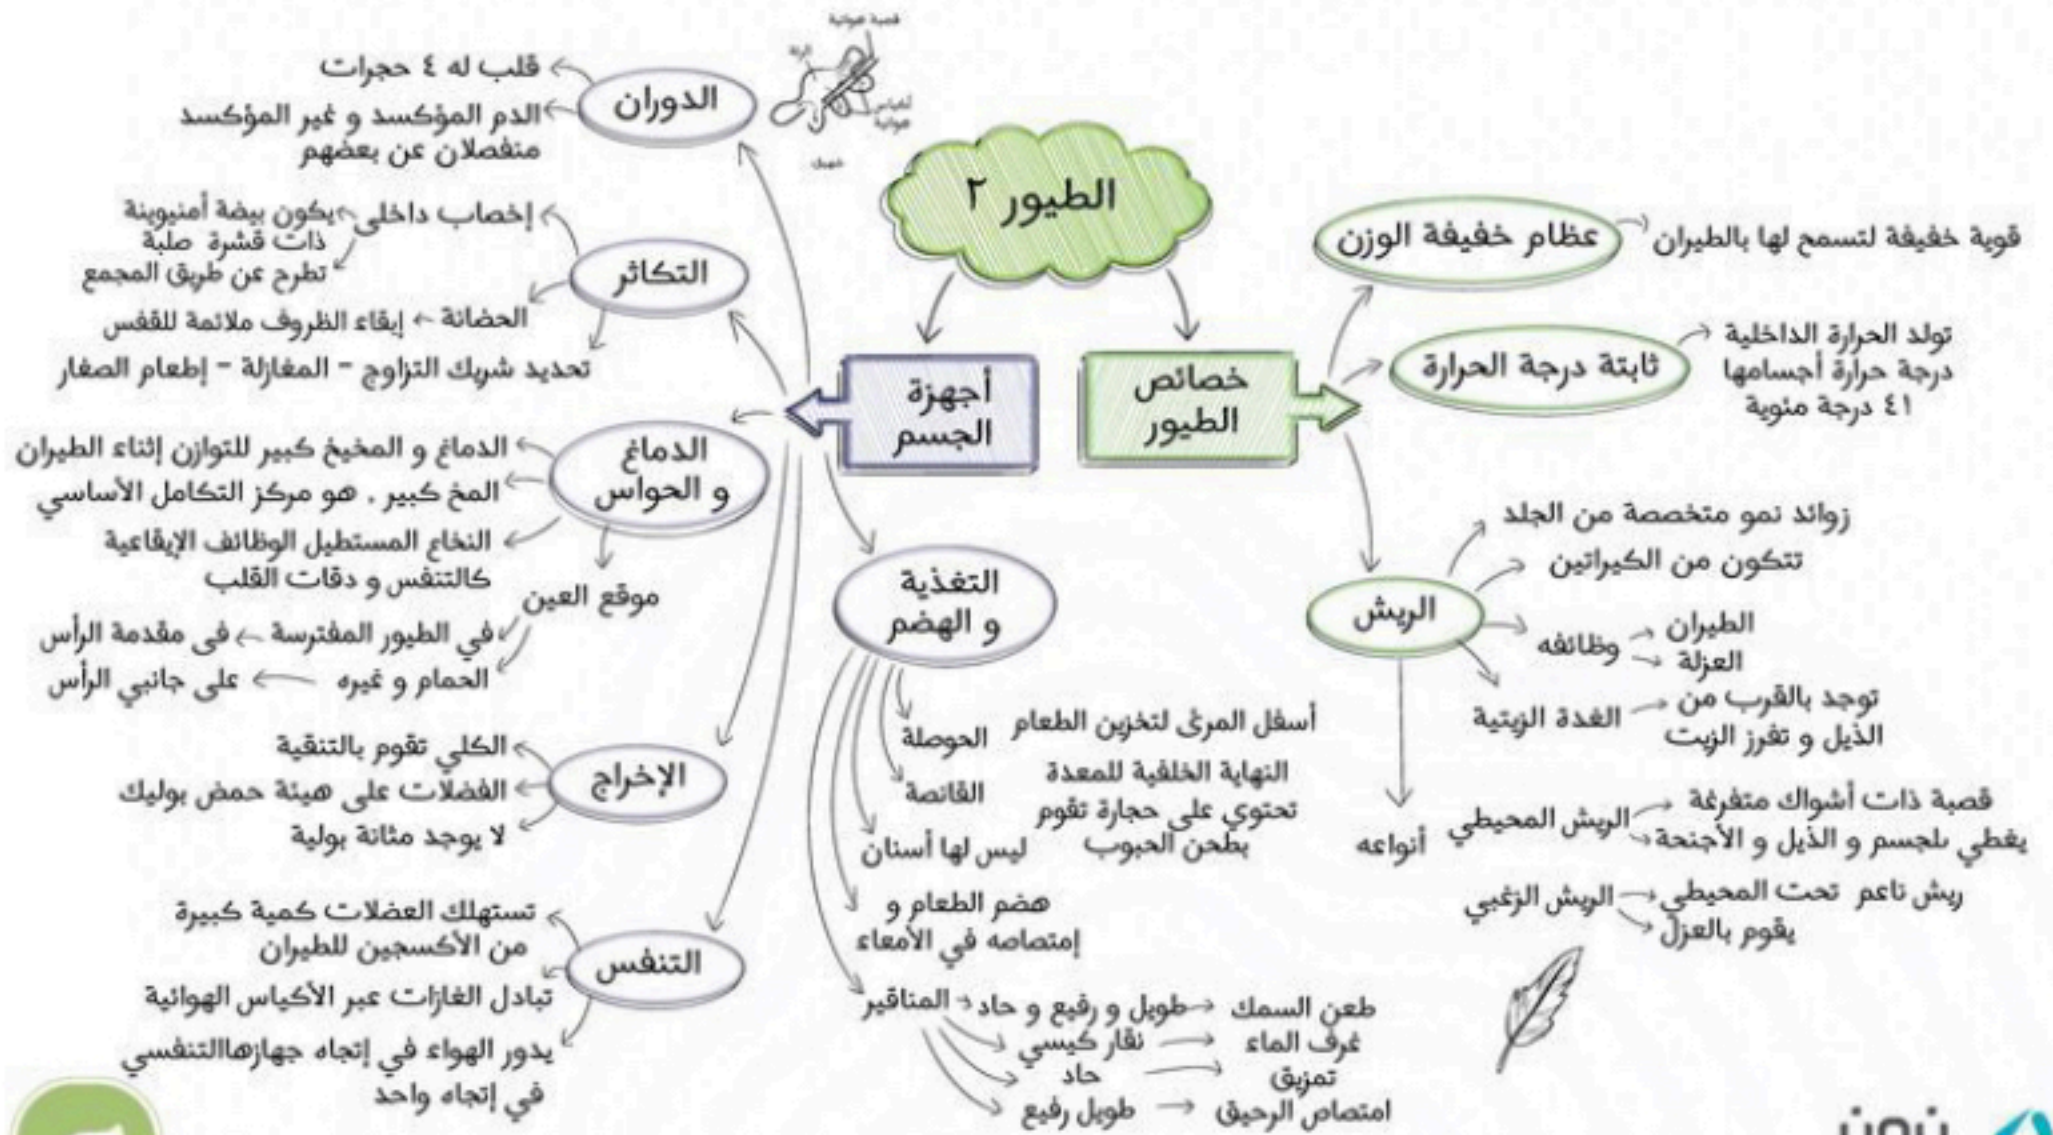 الطيور ٢
خصائص
الطيور
عظام خفيفة الوزن
قوية خفيفة لتسمح لها بالطيران
ثابتة درجة الحرارة
تولد الحرارة الداخلية
درجة حرارة أجسامها
٤١ درجة مئوية
الريش
زوائد نمو متخصصة من الجلد
تتكون من الكيراتين
وظائفه
الطيران
العزلة
الغدة الزيتية
توجد بالقرب من
الذيل و تفرز الزيت
أنواعه
الريش المحيطي
قصبة ذات أشواك متفرغة
يغطي لجسم و الذيل و الأجنحة
الريش الزغبي
ريش ناعم تحت المحيطي
يقوم بالعزل
أجهزة
الجسم
الدوران
قلب له ٤ حجرات
الدم المؤكسد و غير المؤكسد
منفصلان عن بعضهم
قصبة هوائية
الرئة
أكياس
هوائية
شهيق
التكاثر
إخصاب داخلي
يكون بيضة أمنيوينة
ذات قشرة صلبة
تطرح عن طريق المجمع
الحضانة
إبقاء الظروف ملائمة للفقس
تحديد شريك التزاوج - المغازلة - إطعام الصغار
الدماغ
و الحواس
الدماغ و المخيخ كبير للتوازن إثناء الطيران
المخ كبير . هو مركز التكامل الأساسي
النخاع المستطيل الوظائف الإيقاعية
كالتنفس و دقات القلب
موقع العين
في الطيور المفترسة
في مقدمة الرأس
الحمام و غيره
على جانبي الرأس
الإخراج
الكلي تقوم بالتنقية
الفضلات على هيئة حمض بوليك
لا يوجد مثانة بولية
التنفس
تستهلك العضلات كمية كبيرة
من الأكسجين للطيران
تبادل الغازات عبر الأكياس الهوائية
يدور الهواء في إتجاه جهازهاالتنفسي
في إتجاه واحد
التغذية
و الهضم
الحوصلة
أسفل المرئ لتخزين الطعام
القانصة
النهاية الخلفية للمعدة
تحتوي على حجارة تقوم
بطحن الحبوب
ليس لها أسنان
هضم الطعام و
إمتصاصه في الأمعاء
المناقير
طويل و رفيع و حاد
طعن السمك
نقار كيسي
غرف الماء
حاد
تمزيق
طويل رفيع
امتصاص الرحيق